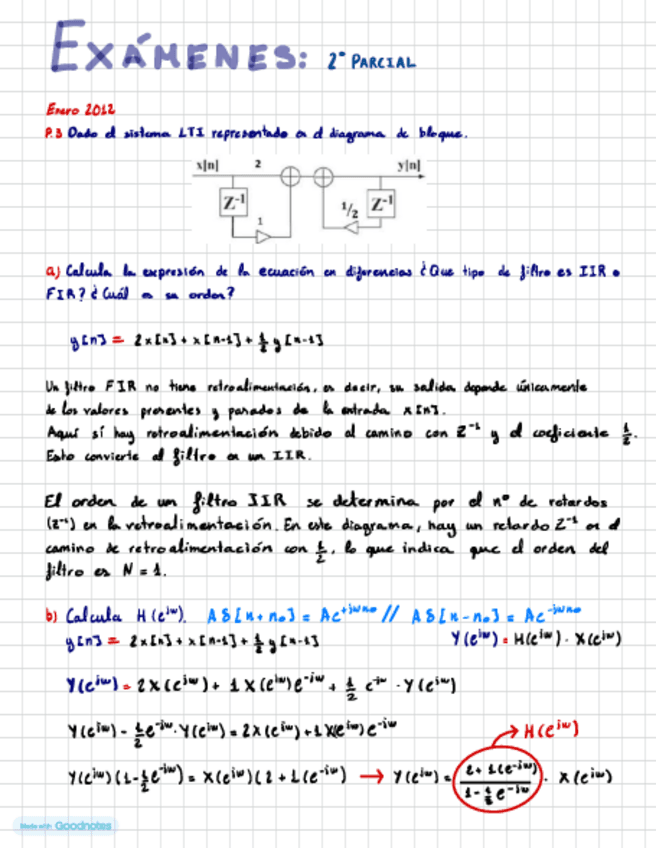 EXÁMENES: 2º PARCIAL
Enero 2012
P.3 Dado el sistema LTI representado en el diagrama de bloque.
x[n] 2 y[n]
Z⁻¹ 1/2 Z⁻¹
1
a) Calcula la expresión de la ecuación en diferencias ¿Que tipo de filtro es IIR o
FIR? ¿Cuál es su orden?
y[n] = 2x[n] + x[n-1] + 1/2 y[n-1]
Un filtro FIR no tiene retroalimentación, es decir, su salida depende únicamente
de los valores presentes y pasados de la entrada x[n].
Aquí sí hay retroalimentación debido al camino con Z⁻¹ y el coeficiente 1/2.
Esto convierte al filtro en un IIR.
El orden de un filtro IIR se determina por el nº de retardos
(Z⁻¹) en la retroalimentación. En este diagrama, hay un retardo Z⁻¹ en el
camino de retroalimentación con 1/2, lo que indica que el orden del
filtro es N = 1.
b) Calcula H(e^jw). Aδ[n+n₀] = Ae^+jwn₀ // Aδ[n-n₀] = Ae^-jwn₀
y[n] = 2x[n] + x[n-1] + 1/2 y[n-1] Y(e^jw) = H(e^jw) · X(e^jw)
Y(e^jw) = 2X(e^jw) + 1X(e^jw)e^-jw + 1/2 e^-jw · Y(e^jw)
Y(e^jw) - 1/2 e^-jw · Y(e^jw) = 2X(e^jw) + 1X(e^jw)e^-jw → H(e^jw)
Y(e^jw)(1-1/2 e^-jw) = X(e^jw)(2 + 1(e^-jw) → Y(e^jw) = (2 + 1(e^-jw) / 1 - 1/2 e^-jw) · X(e^jw)
Made with Goodnotes